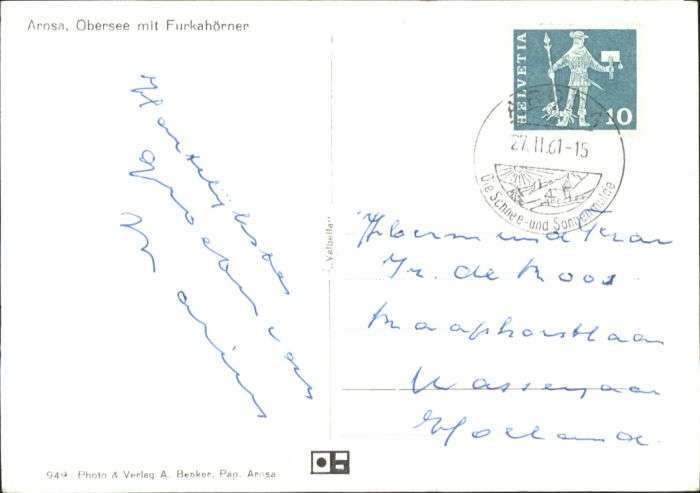 Arosa, Obersee mit Furkahörner
HELVETIA
10
27.II.61-15
Die Schnee- und Sonnenmulde
Hartelijkste
groeten van
"Valbella"
Fr. de Roos
Maaphorstlaan
Wassenaar
Holland.
949 Photo & Verlag A. Benker, Pap. Arosa